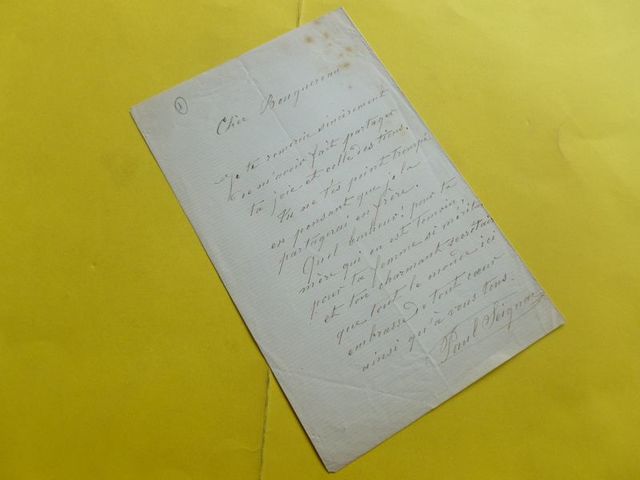 1
Cher Bouguereau
Je te remercie sincèrement
de m'avoir fait partager
ta joie et celle des tiens.
Tu ne t'es point trompé
en pensant que je la
partagerai en frère.
Quel bonheur! pour ta
mère qui en est témoin,
pour ta femme si méritante
et ton charmant secrétaire
que tout le monde ici
embrasse de tout cœur
ainsi qu'à vous tous.
Paul Seignac